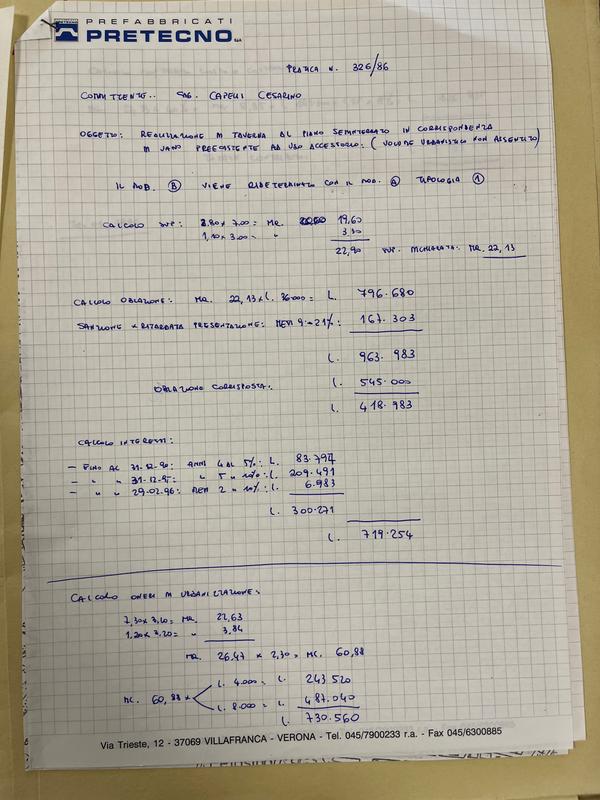 PRETECNO
PREFABBRICATI
PRETECNO SPA
PRATICA N. 326/86
COMMITTENTE.. SIG. CAPELLI CESARINO
OGGETTO: REALIZZAZIONE DI TAVERNA AL PIANO SEMINTERRATO IN CORRISPONDENZA
DI VANO PREESISTENTE AD USO ACCESSORIO. (VOLUME URBANISTICO NON ASSENTITO)
IL MOD. B VIENE RIDETERMINATO CON IL MOD. A TIPOLOGIA 1
CALCOLO SUP: 2.80 x 7.00 = MQ. 19,60
1,10 x 3.00 = " 3.30
22,90 SUP. DICHIARATA: MQ. 22,13
CALCOLO OBLAZIONE: MQ. 22,13 x L. 36000 = L. 796.680
SANZIONE x RITARDATA PRESENTAZIONE: MESI 9 = 21%: 167.303
L. 963.983
OBLAZIONE CORRISPOSTA: L. 545.000
L. 418.983
CALCOLO INTERESSI:
- FINO AL 31-12-90: ANNI 4 AL 5%: L. 83.797
- " " 31-12-95: " 5 " 10%: L. 209.491
- " " 29-02-96: MESI 2 " 10%: L. 6.983
L. 300.271
L. 719.254
CALCOLO ONERI DI URBANIZZAZIONE:
7,30 x 3,10 = MQ. 22,63
1,20 x 3,20 = " 3,84
MQ. 26,47 x 2,30 = MC. 60,88
L. 4.000 = L. 243520
MC. 60,88 x
L. 8.000 = L. 487.040
L. 730.560
Via Trieste, 12 - 37069 VILLAFRANCA - VERONA - Tel. 045/7900233 r.a. - Fax 045/6300885